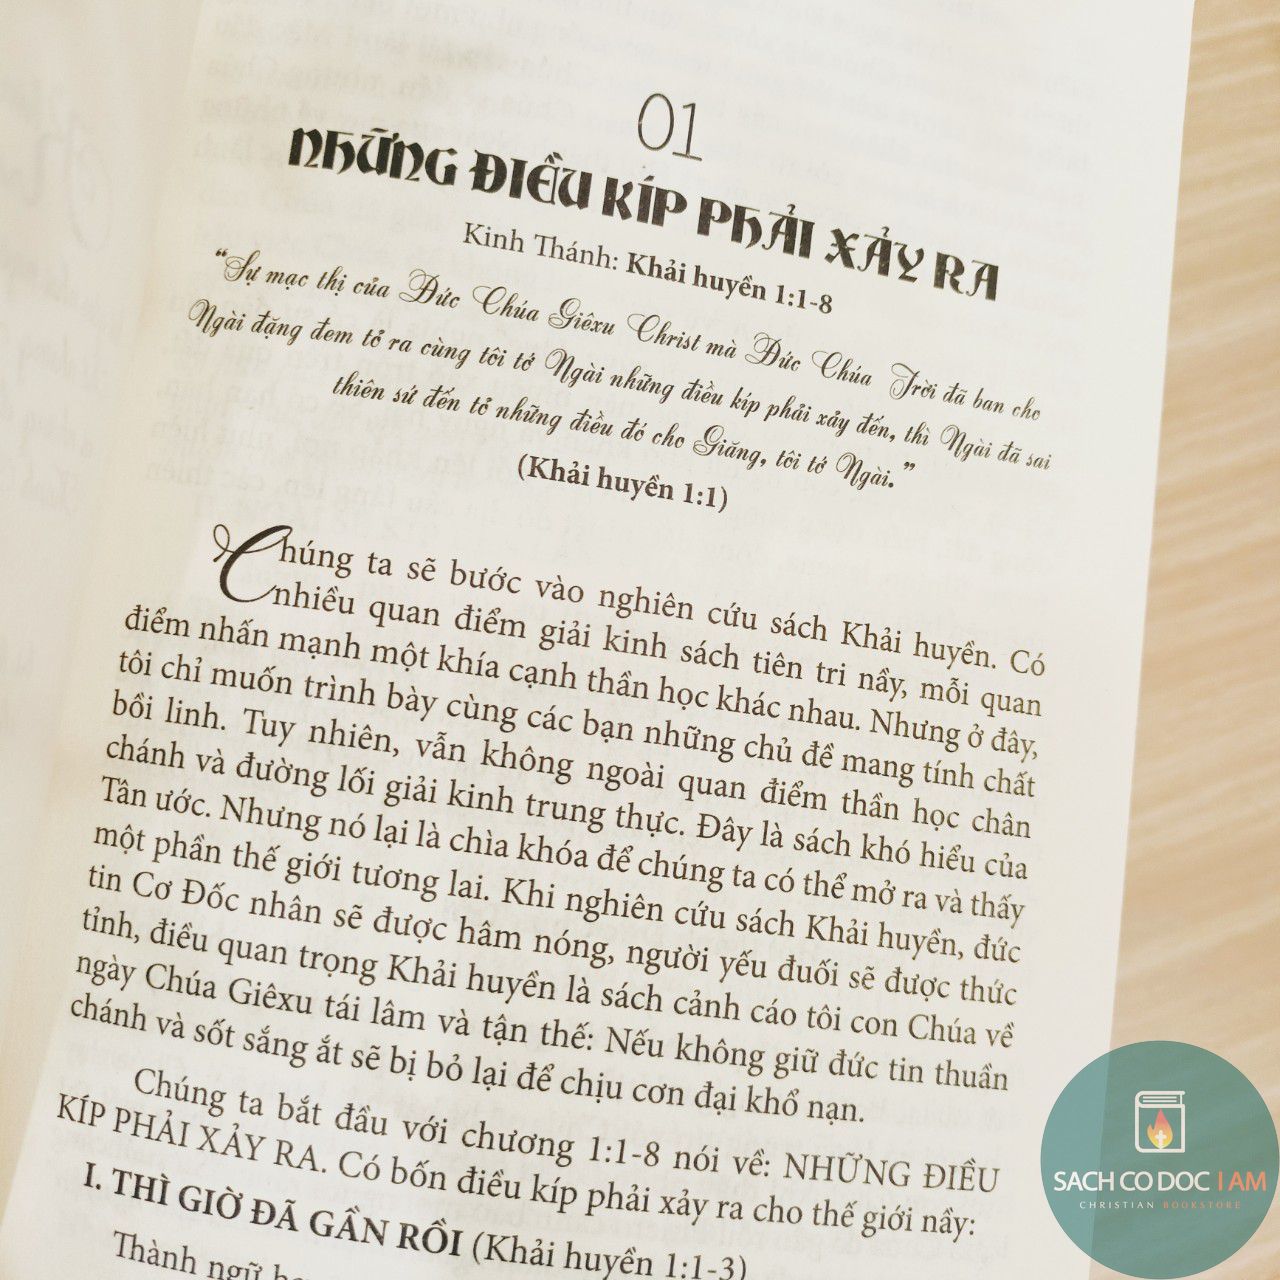 01
NHỮNG ĐIỀU KÍP PHẢI XẢY RA
Kinh Thánh: Khải huyền 1:1-8
“Sự mạc thị của Đức Chúa Giêxu Christ mà Đức Chúa Trời đã ban cho
Ngài đặng đem tỏ ra cùng tôi tớ Ngài những điều kíp phải xảy đến, thì Ngài đã sai
thiên sứ đến tỏ những điều đó cho Giăng, tôi tớ Ngài.”
(Khải huyền 1:1)
Chúng ta sẽ bước vào nghiên cứu sách Khải huyền. Có
nhiều quan điểm giải kinh sách tiên tri nầy, mỗi quan
điểm nhấn mạnh một khía cạnh thần học khác nhau. Nhưng ở đây,
tôi chỉ muốn trình bày cùng các bạn những chủ đề mang tính chất
bồi linh. Tuy nhiên, vẫn không ngoài quan điểm thần học chân
chánh và đường lối giải kinh trung thực. Đây là sách khó hiểu của
Tân ước. Nhưng nó lại là chìa khóa để chúng ta có thể mở ra và thấy
một phần thế giới tương lai. Khi nghiên cứu sách Khải huyền, đức
tin Cơ Đốc nhân sẽ được hâm nóng, người yếu đuối sẽ được thức
tỉnh, điều quan trọng Khải huyền là sách cảnh cáo tôi con Chúa về
ngày Chúa Giêxu tái lâm và tận thế: Nếu không giữ đức tin thuần
chánh và sốt sắng ắt sẽ bị bỏ lại để chịu cơn đại khổ nạn.
Chúng ta bắt đầu với chương 1:1-8 nói về: NHỮNG ĐIỀU
KÍP PHẢI XẢY RA. Có bốn điều kíp phải xảy ra cho thế giới nầy:
I. THÌ GIỜ ĐÃ GẦN RỒI (Khải huyền 1:1-3)
Thành ngữ
SACH CO DOC I AM
CHRISTIAN BOOKSTORE